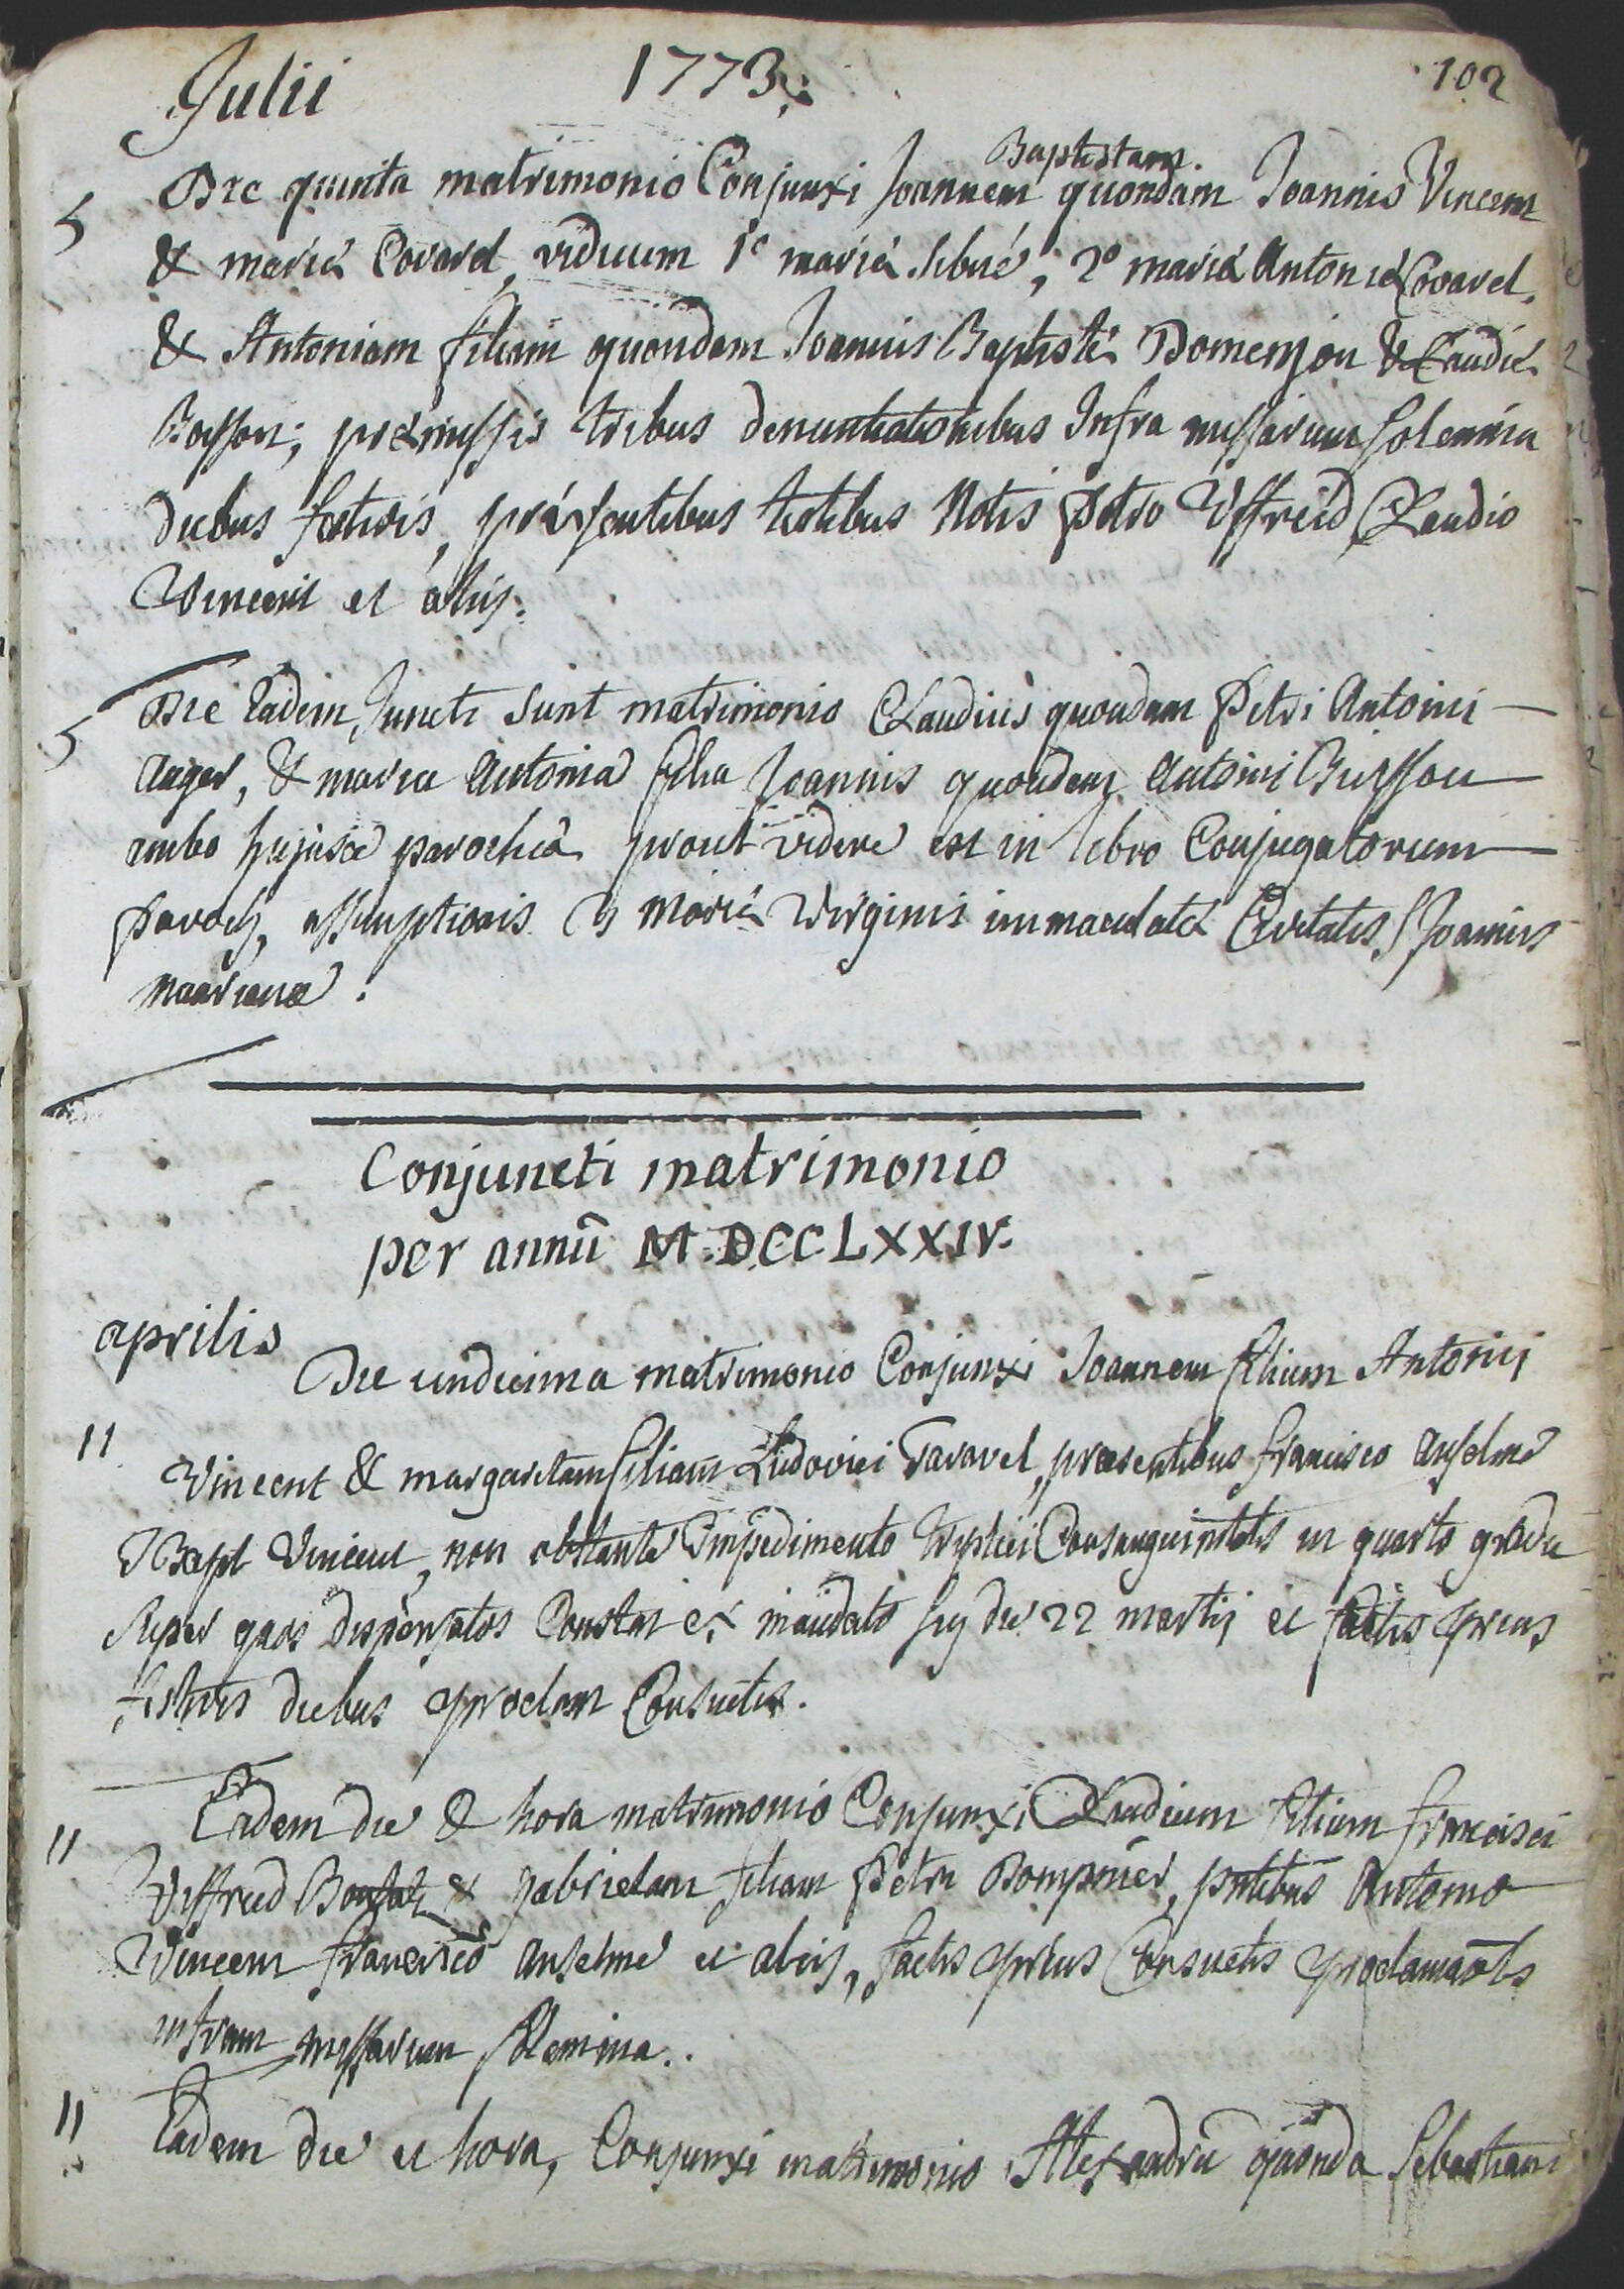 Julii 1773. 102
Die quinta matrimonio Conjunxi Joannem Baptistam quondam Joannis Vincent
5
& mariæ Covarel, viduum 1º mariæ, 2º mariæ Antoniæ Covarel,
& Antoniam filiam quondam Joannis Baptistæ Domenjon & Claudiæ
præmissis tribus denuntiationibus Infra missarum solemnia
diebus festivis, præsentibus testibus Notis Petro Viffreid Claudio
Vincent et aliis.
Die Eadem, Juncti sunt matrimonio Claudius quondam Petri Antonii
5
auger, & maria Antonia filia Joannis quondam Antonii Buisson
ambo hujusce parochiæ prout videre est in libro Conjugatorum
paroch, assumptionis B mariæ Virginis immaculatæ Civitatis S Joannis
maurianæ.
Conjuncti matrimonio
per annū M.DCCLXXIV.
aprilis
Die undecima matrimonio Conjunxi Joannem filium Antonii
11
Vincent & margaritam filiam Ludovici Taravel, præsentibus francisco anselme
J Bapt Vincent, non obstante impedimento triplici Consanguinitatis in quarto gradu
super quos dispensatos Constat ex mandato die 22 martii et factis prius
festivis diebus proclam Consuetis.
Eadem die & hora matrimonio Conjunxi Claudium filium francisci
11
Viffreid & gabrielam filiam Petri Dompnier, pntibus Antonio
Vincent francisco anselme et aliis, factis prius Consuetis proclamaōbs
missarum solemnia..
11
Eadem die et hora, Conjunxi matrimonio Alexandrū quonda Sebastiani